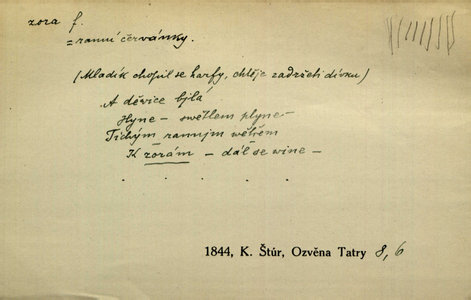 zora f.
= ranní červánky.
(Mladík chopil se harfy, chtěje zadržeti dívku)
A děwice bjlá
Hyne – swětlem plyne –
Tichým rannjm wětřem
K zorám – dál se wine –
. . . . . .
1844, K. Štúr, Ozvěna Tatry 8, 6